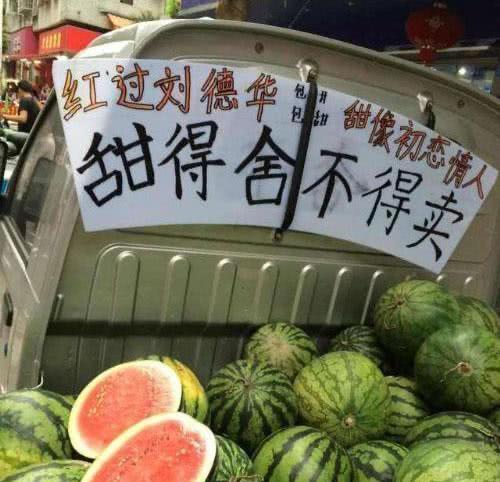 红过刘德华
包甜
包甜
甜像初恋情人
甜得舍不得卖